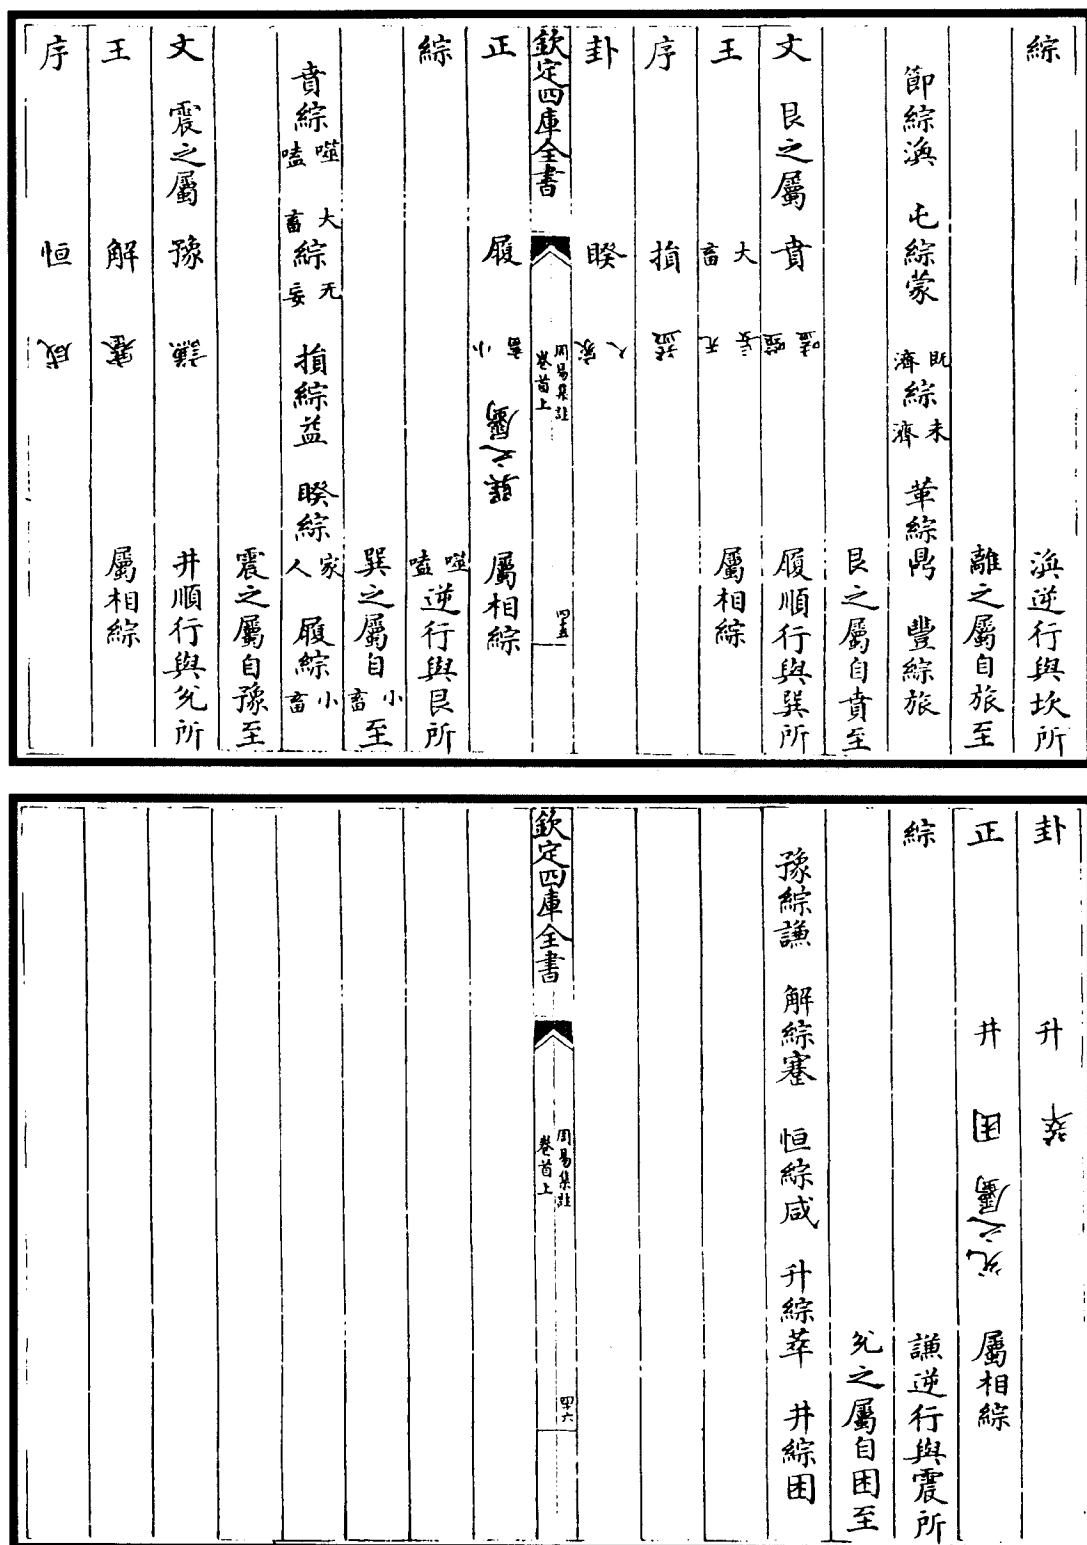 綜 渙逆行與坎所
離之屬自旅至
節綜渙 屯綜蒙 既濟綜未濟 革綜鼎 豐綜旅
艮之屬自賁至
文 艮之屬 賁 噬嗑 履順行與巽所
王 大畜 无妄 屬相綜
序 損 益
卦 睽 家人
欽定四庫全書 周易集註 卷首上 四五
正 履 小畜 巽之屬 屬相綜
綜 噬嗑逆行與艮所
巽之屬自小畜至
賁綜噬嗑 大畜綜无妄 損綜益 睽綜家人 履綜小畜
震之屬自豫至
文 震之屬 豫 謙 井順行與兊所
王 解 蹇 屬相綜
序 恒 咸
卦 升 萃
正 井 困 兊之屬 屬相綜
綜 謙逆行與震所
兊之屬自困至
豫綜謙 解綜蹇 恒綜咸 升綜萃 井綜困
欽定四庫全書 周易集註 卷首上 四六